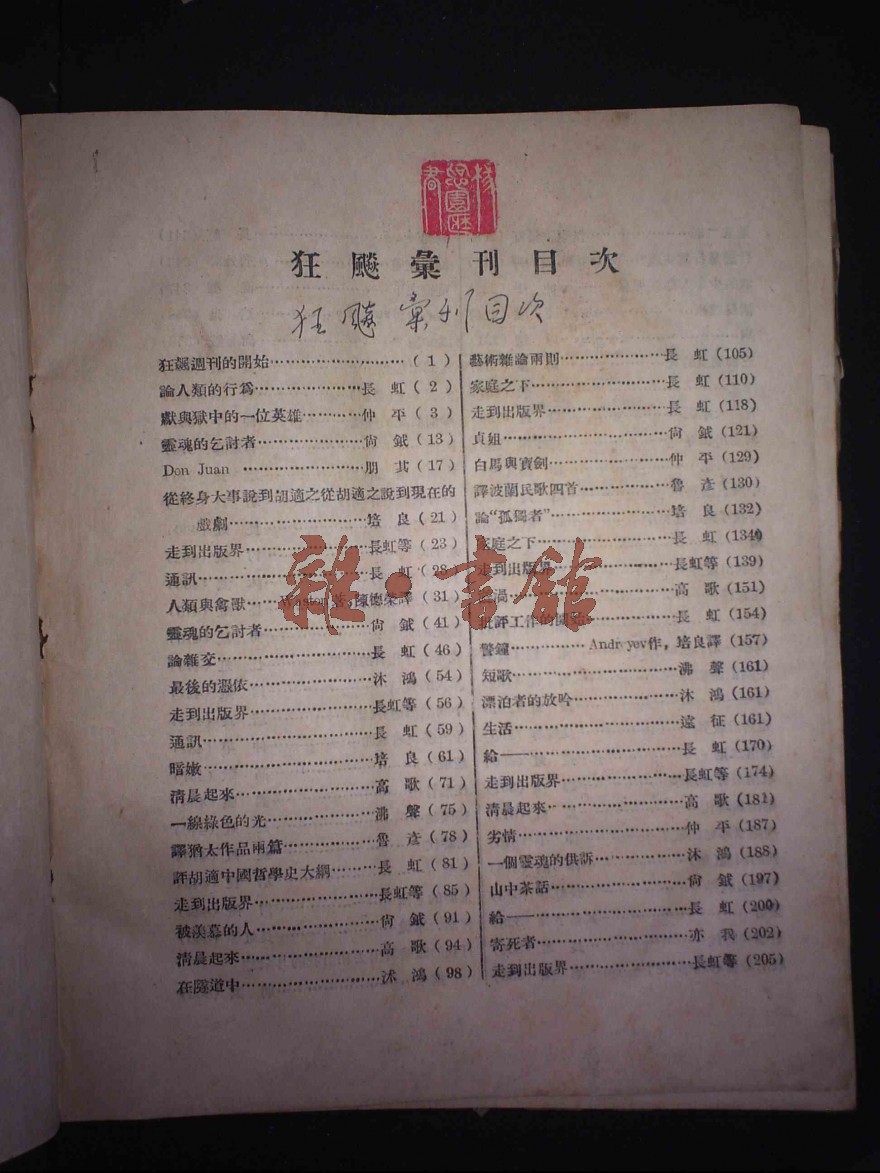 狂飈彙刊目次
狂飈彙刊目次
狂飆週刊的開始………………………( 1 )
論人類的行爲…………………長 虹 ( 2 )
獻與獄中的一位英雄…………仲 平 ( 3 )
靈魂的乞討者…………………尙 鉞 (13)
Don Juan ………………………朋 其 (17)
從終身大事說到胡適之從胡適之說到現在的
戲劇………………………培 良 (21)
走到出版界……………………長虹等 (23)
通訊……………………………長 虹 (28)
人類與禽獸……陳德榮譯 (31)
靈魂的乞討者…………………尙 鉞 (41)
論雜交…………………………長 虹 (46)
最後的憑依……………………沐 鴻 (54)
走到出版界……………………長虹等 (56)
通訊……………………………長 虹 (59)
暗嫩……………………………培 良 (61)
淸晨起來………………………高 歌 (71)
一線綠色的光…………………沸 聲 (75)
譯猶太作品兩篇………………魯 彥 (78)
評胡適中國哲學史大綱………長 虹 (81)
走到出版界……………………長虹等 (85)
被羨慕的人……………………尙 鉞 (91)
淸晨起來………………………高 歌 (94)
在隧道中………………………沐 鴻 (98)
藝術雜論兩則…………………長 虹 (105)
家庭之下………………………長 虹 (110)
走到出版界……………………長 虹 (118)
貞姐……………………………尙 鉞 (121)
白馬與寶劍……………………仲 平 (129)
譯波蘭民歌四首………………魯 彥 (130)
論“孤獨者”……………………培 良 (132)
家庭之下………………………長 虹 (134)
走到出版界……………………長虹等 (139)
渦……………………………高 歌 (151)
批評工作的開始………………長 虹 (154)
警鐘…………Andreyev作，培良譯 (157)
短歌……………………………沸 聲 (161)
漂泊者的放吟…………………沐 鴻 (161)
生活……………………………遠 征 (161)
給——…………………………長 虹 (170)
走到出版界……………………長虹等 (174)
淸晨起來………………………高 歌 (182)
劣情……………………………仲 平 (187)
一個靈魂的供訴………………沐 鴻 (188)
山中茶話………………………尙 鉞 (197)
給——…………………………長 虹 (200)
寄死者…………………………亦 我 (202)
走到出版界……………………長虹等 (205)
雜·書館